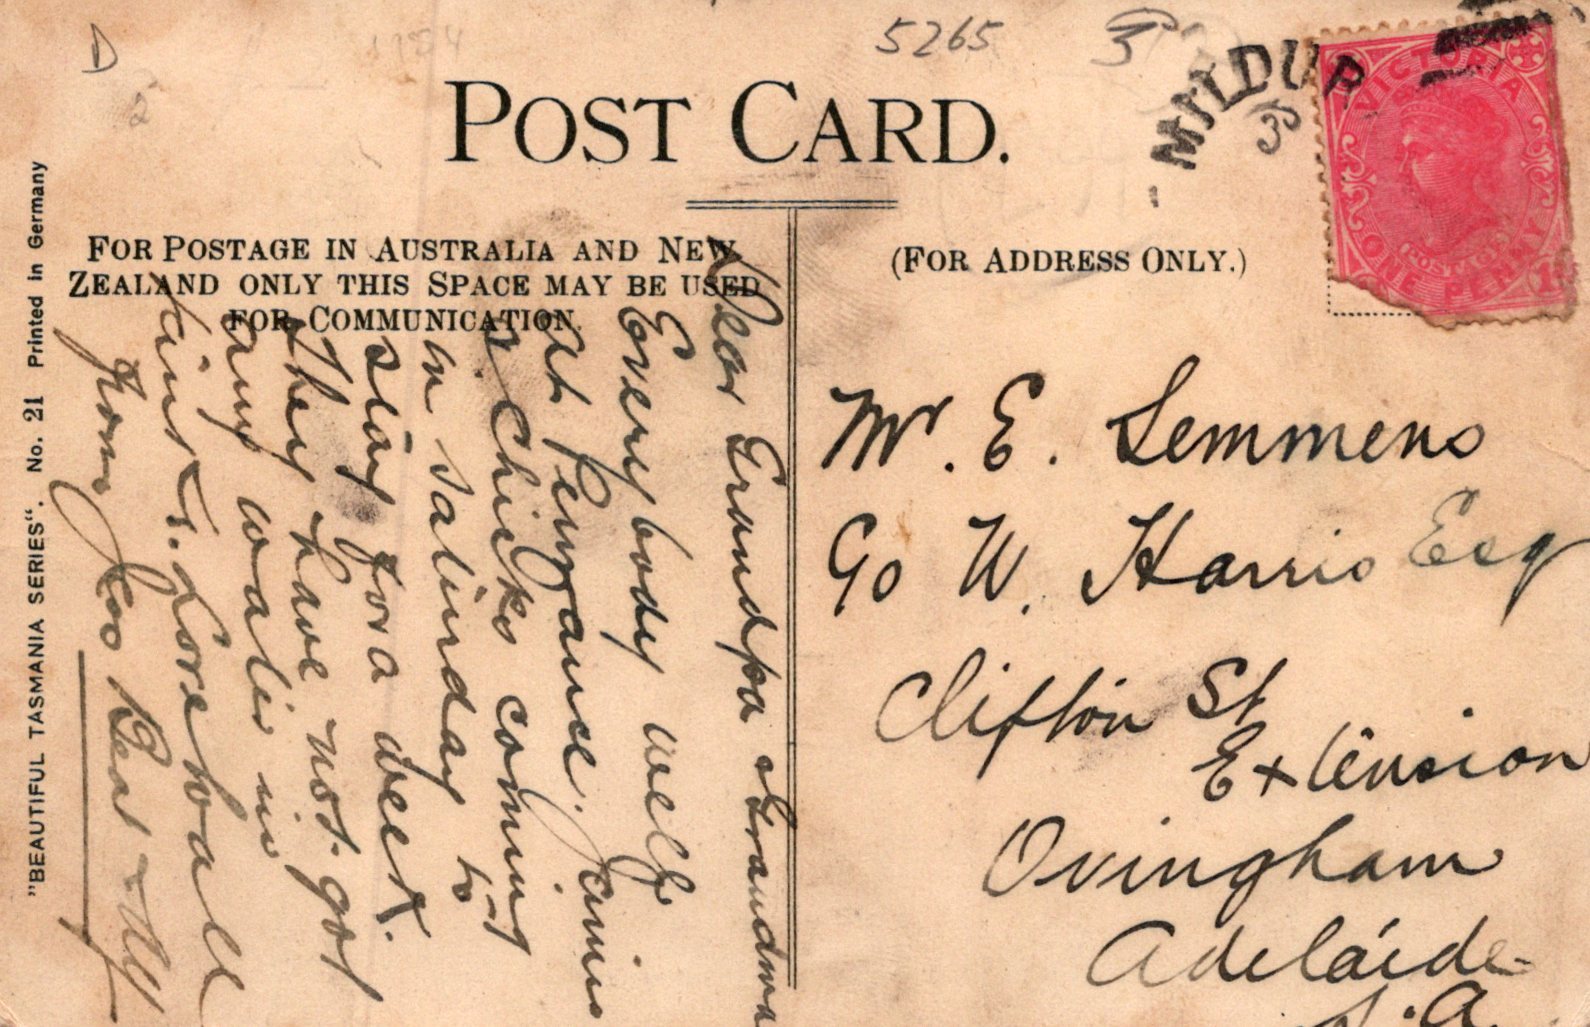 D
5265
3
POST CARD.
MILDUR
VICTORIA
POSTAGE
ONE PENNY
FOR POSTAGE IN AUSTRALIA AND NEW
ZEALAND ONLY THIS SPACE MAY BE USED
FOR COMMUNICATION.
(FOR ADDRESS ONLY.)
"BEAUTIFUL TASMANIA SERIES". No. 21 Printed in Germany
Dear Grandpa & Grandma
Everybody well
at Penzance.
& Chicks coming
in Saturday to
stay for a week.
They have not got
any water in
Love to all
from
Mr. E. Semmens
C/o W. Harris Esq
Clifton St
Extension
Ovingham
Adelaide
S.A.